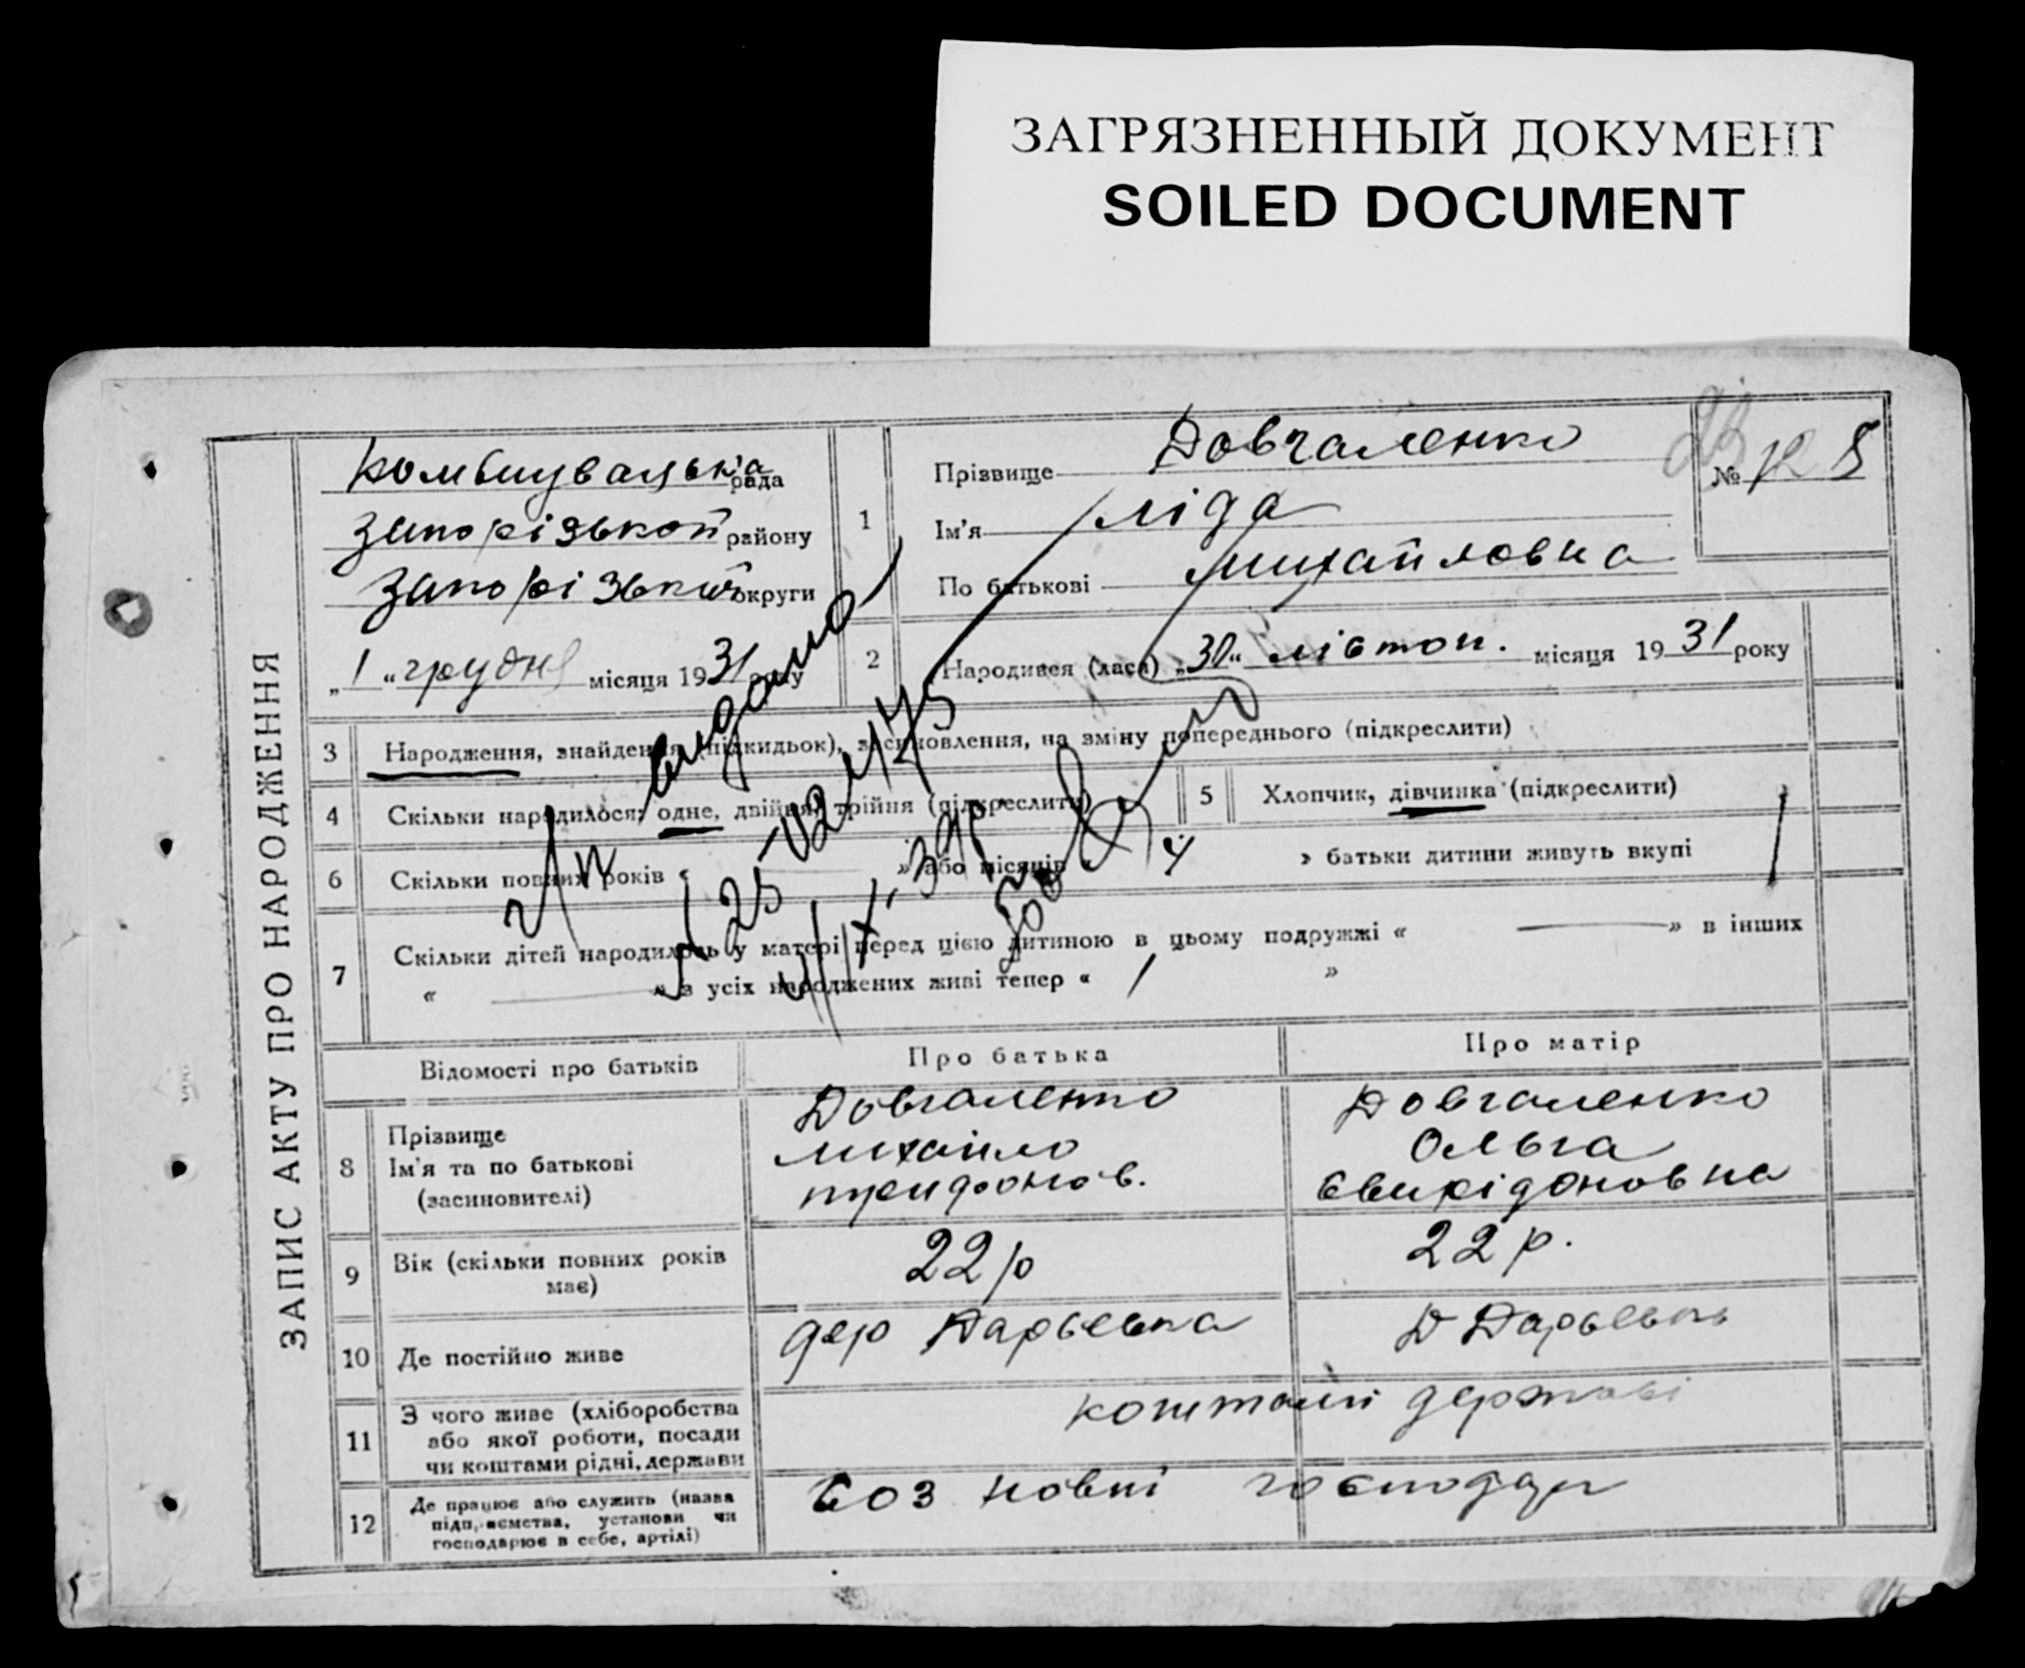 ЗАГРЯЗНЕННЫЙ ДОКУМЕНТ
SOILED DOCUMENT
ЗАПИС АКТУ ПРО НАРОДЖЕННЯ
рада
Запорізької району
Запорізької округи
„1“ грудня місяця 1931 року
1
Прізвище Довгаленко
Ім'я Ліда
По батькові Михайловна
№
2 Народився (лася) „30“ лістоп. місяця 1931 року
3 Народження, знайдення (підкидьок), засиновлення, на зміну попереднього (підкреслити)
4 Скільки народилося: одне, двійня, трійня (підкреслити)
5 Хлопчик, дівчинка (підкреслити)
6 Скільки повних років « » або місяців » батьки дитини живуть вкупі
7 Скільки дітей народилось у матері перед цією дитиною в цьому подружжі « — » в інших
« — » з усіх народжених живі тепер « 1 »
видано
Відомості про батьків
Про батька
Про матір
8 Прізвище
Ім'я та по батькові
(засиновителі)
Довгаленко
Михайло
Трифонов.
Довгаленко
Ольга
Свирідоновна
9 Вік (скільки повних років має)
22 р
22 р.
10 Де постійно живе
дер Дарьевка
Д Дарьевка
11 З чого живе (хліборобства
або якої роботи, посади
чи коштами рідні, держави
коштами державі
12 Де працює або служить (назва
підприємства, установи чи
господарює в себе, артілі)